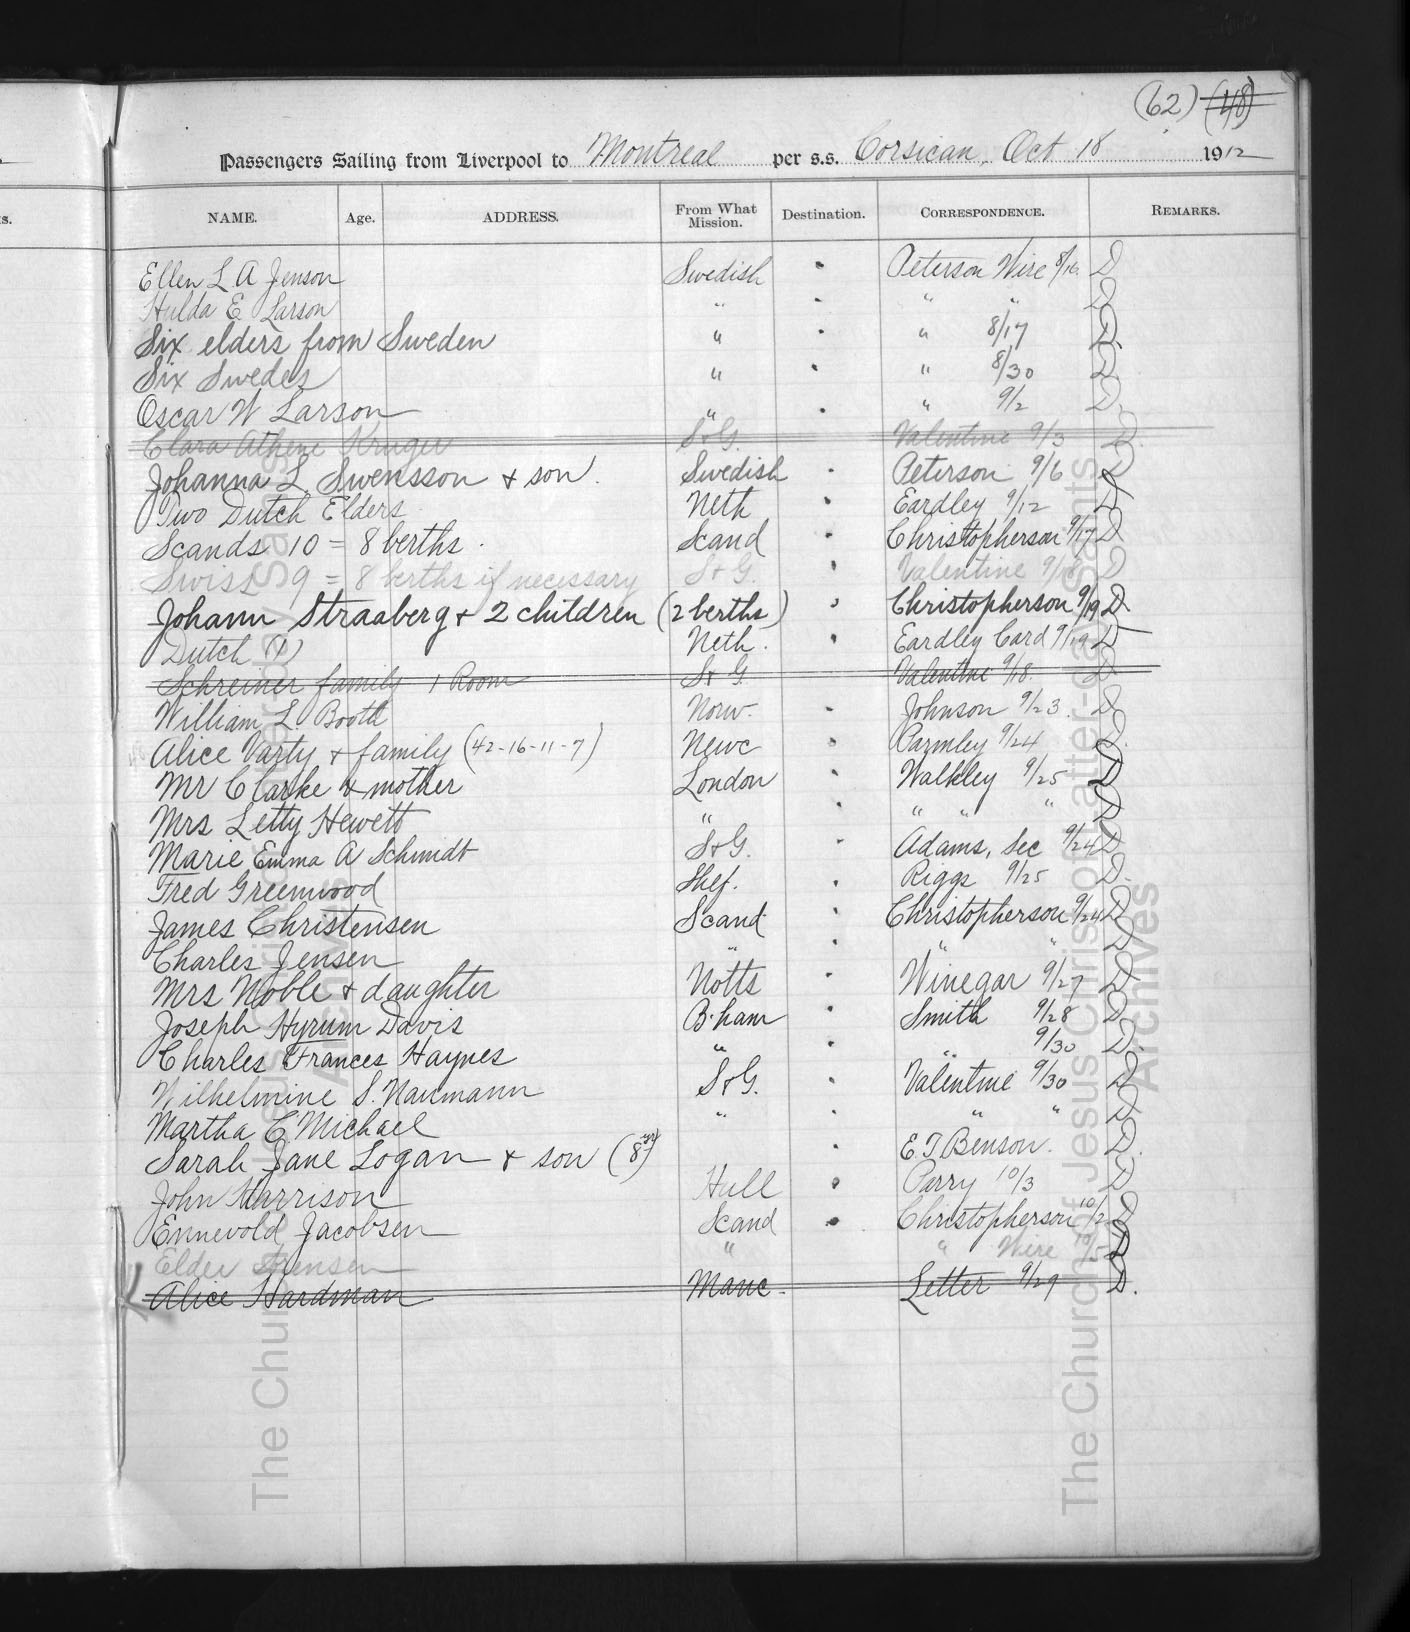 (62) (48)
Passengers Sailing from Liverpool to Montreal per s.s. Corsican, Oct 18 1912
NAME. Age. ADDRESS. From What Mission. Destination. CORRESPONDENCE. REMARKS.
Ellen L A Jenson Swedish . Peterson Wire 8/16 D
Hulda E Larson " . " " D
Six elders from Sweden " . " 8/17 D.
Six Swedes " . " 8/30 D
Oscar W Larson " . " 9/2 D.
Clara Athene Kruger S+G. Valentine 9/3 D.
Johanna L Swensson + son. Swedish . Peterson 9/6 D
Two Dutch Elders Neth . Eardley 9/12 D
Scands 10 = 8 berths. Scand . Christopherson 9/17 D
Swiss 9 = 8 berths if necessary S+G. . Valentine D
Johann Straaberg + 2 children (2 berths) . Christopherson 9/19 D.
Dutch Neth. . Eardley Card 9/19 D
Schreiner family 1 Room S+G. Valentine 9/18. D
William L Booth Norw. . Johnson 9/23. D
Alice Varty + family (42-16-11-7) Newc . Parmley 9/24 D.
Mr Clarke & mother London . Walkley 9/25 D
Mrs Letty Hewett " . " " " D
Marie Emma A Schmidt S+G. . Adams, Sec 9/24 D
Fred Greenwood Shef. . Riggs 9/25 D.
James Christensen Scand . Christopherson 9/24 D
Charles Jensen " . " " D
Mrs Noble + daughter Notts . Winegar 9/27 D
Joseph Hyrum Davis B.ham . Smith 9/28 D
Charles Frances Haynes " . " 9/30 D.
Wilhelmine S. Naumann S+G. . Valentine 9/30 D
Martha E Michael " . " " D
Sarah Jane Logan + son (8 yr) . E T Benson. D.
John Harrison Hull . Parry 10/3 D
Ennevold Jacobsen Scand . Christopherson 10/2 D
Elder " " Wire 10/5 D
Alice Hardman Manc. Letter 9/29 D.
The Church of Jesus Christ of Latter-day Saints
Archives
The Church of Jesus Christ of Latter-day Saints
Archives